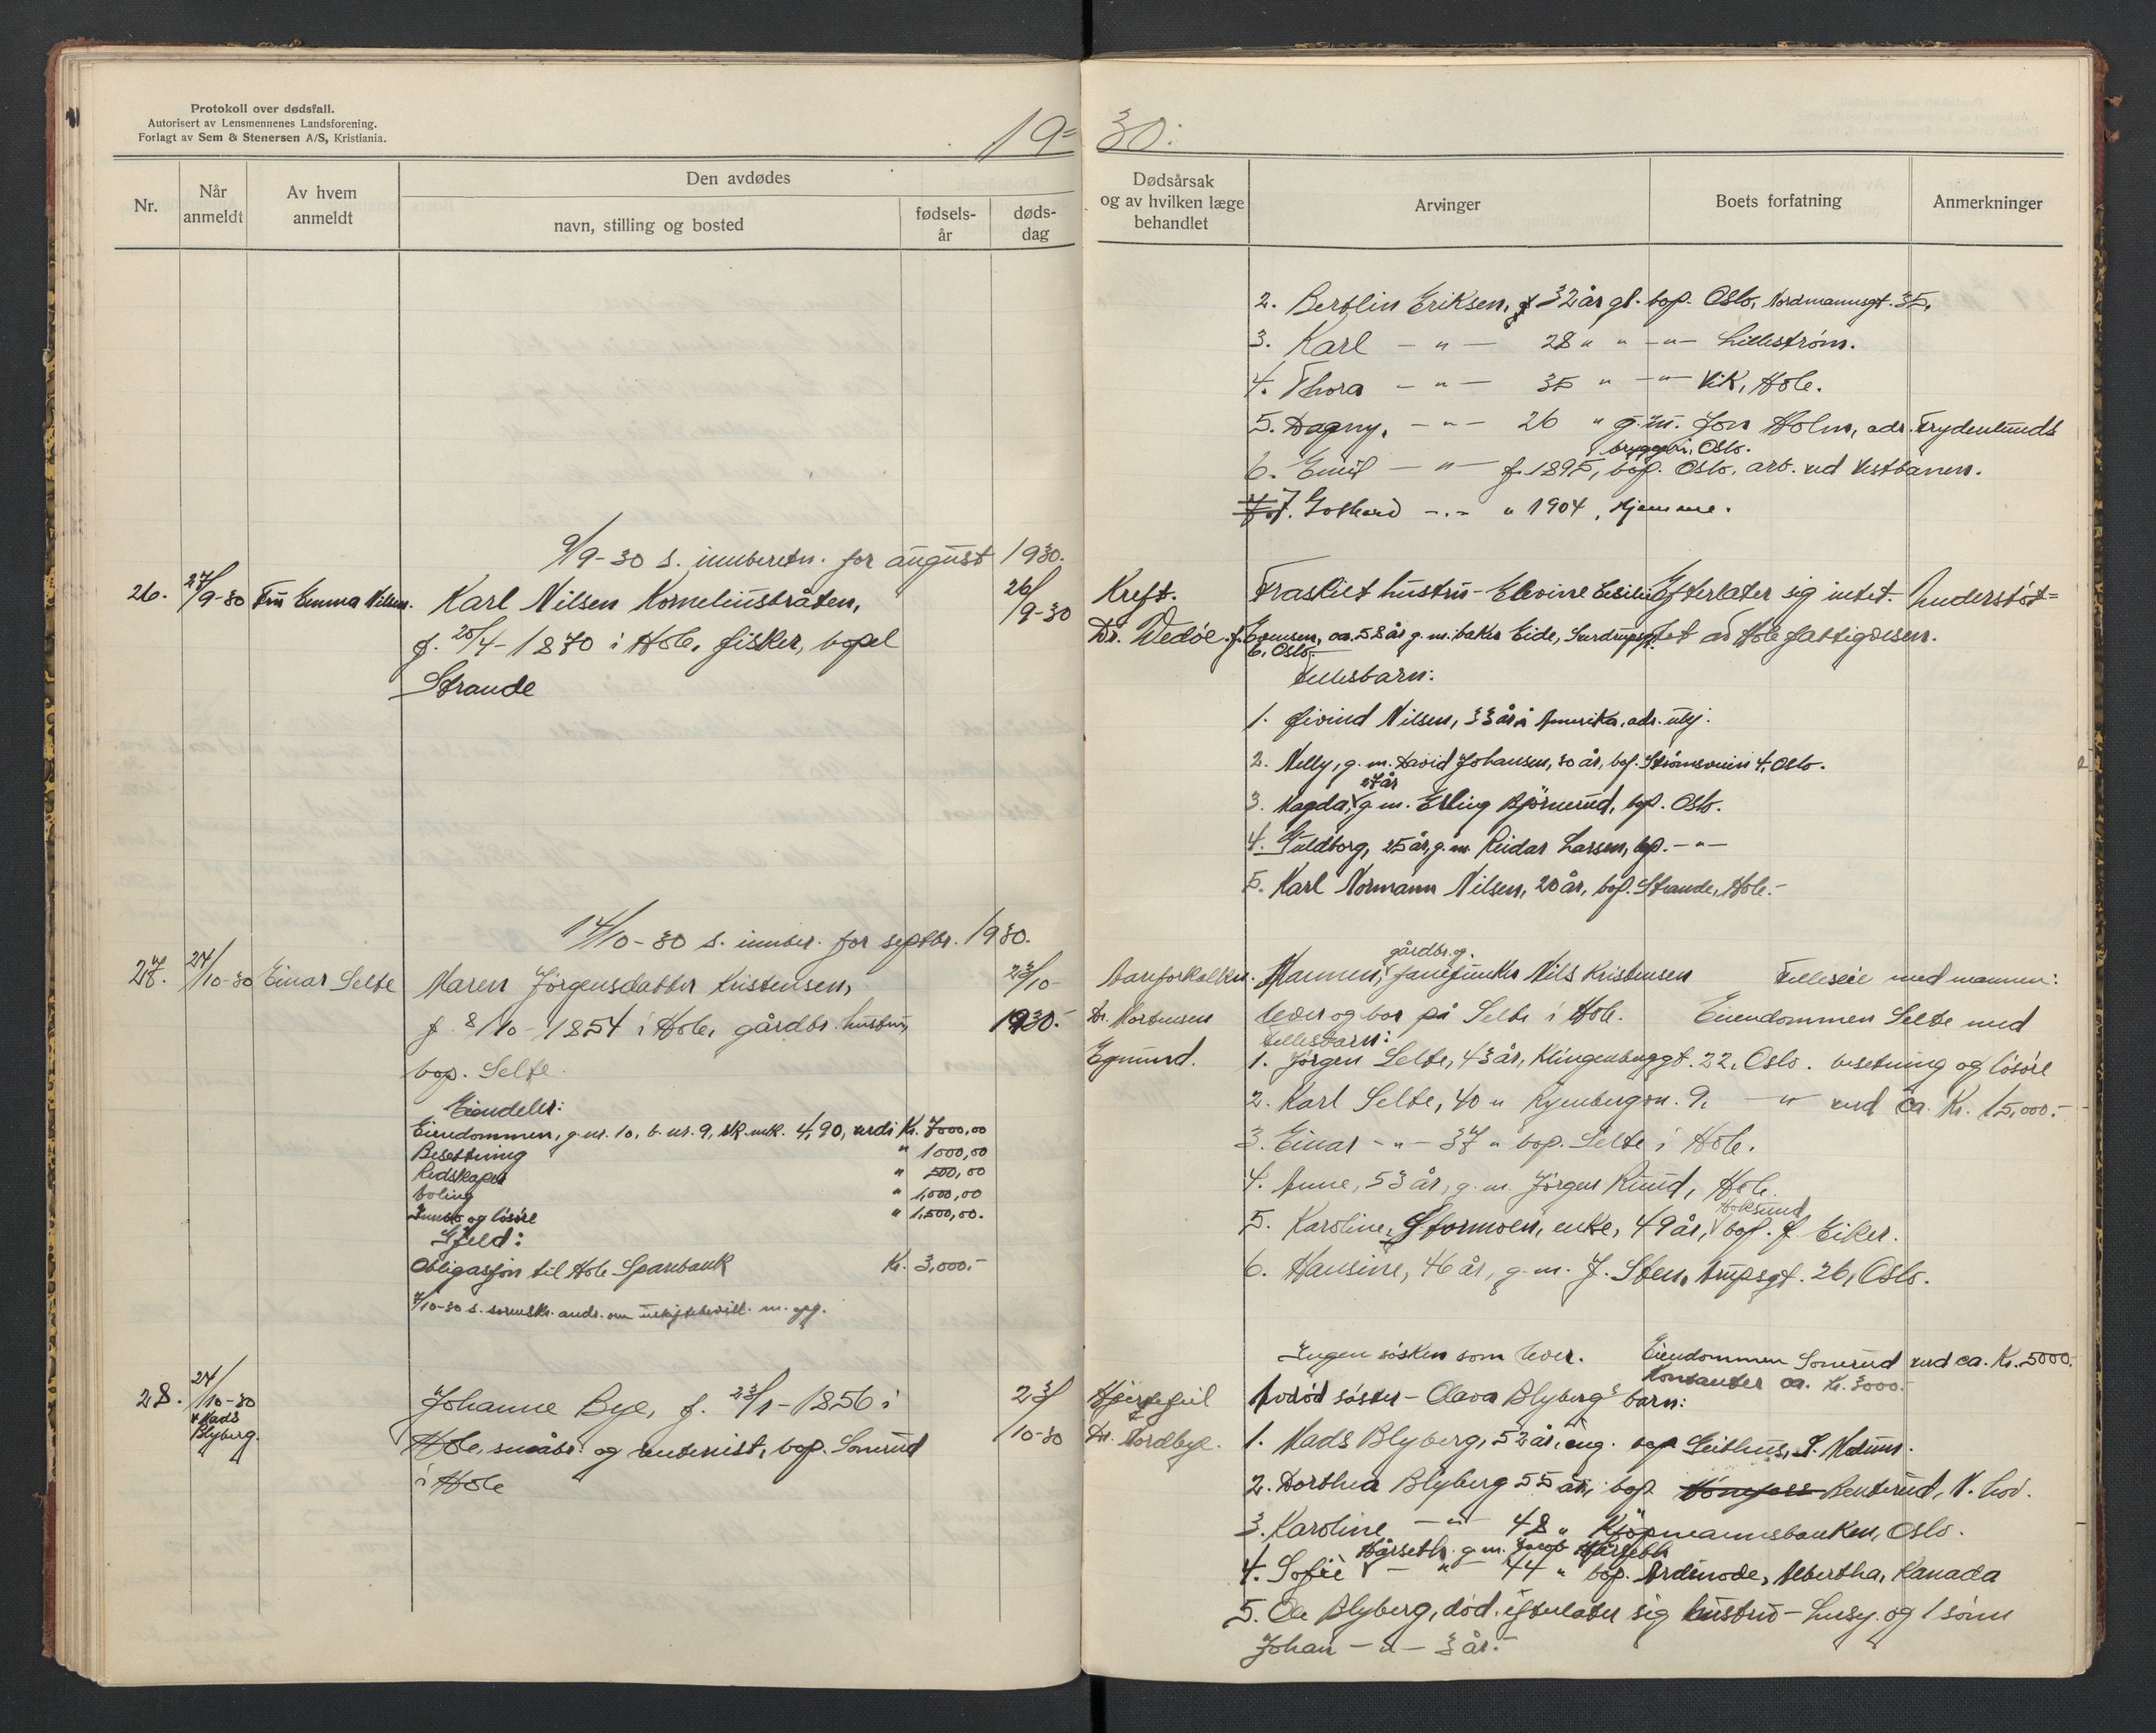 Protokoll over dødsfall.
Autorisert av Lensmennenes Landsforening.
Forlagt av Sem & Stenersen A/S, Kristiania.
19= 30.
Nr.
Når anmeldt
Av hvem anmeldt
Den avdødes
navn, stilling og bosted
fødsels-år
døds-dag
Dødsårsak og av hvilken læge behandlet
Arvinger
Boets forfatning
Anmerkninger
2. Bertlin Eriksen, 32 år gl. bop. Oslo, Nordmannsgt. 35.
3. Karl -"- 28 " " -"- Lillestrøm.
4. Thora -"- 35 " -"- Vik, Hole.
5. Dagny, -"- 26 " g.m. Jon Holm, adr. Frydenlunds
bryggeri, Oslo.
6. Emil -"- f. 1895, bop. Oslo, arb. ved Vestbanen.
7. Gothard -"- " 1904, hjemme.
9/9-30 s. innberetn. for august 1930.
26. 27/9-30 Fru Emma Nilsen. Karl Nilsen Korneliusbråten, 26/9-30
f. 25/4-1870 i Hole, fisker, bopel
Strande
Kreft.
Dr. Wedøe.
Fraskilt hustru - Elevine
f. Evensen, ca. 58 år g.m. baker Eide,
6, Oslo.
Efterlater sig intet. Understøt=
tet av Hole fattigvesen.
Fellesbarn:
1. Øivind Nilsen, 33 år i Amerika, adr. ubkj.
2. Nelly, g.m. David Johansen, 30 år, bop. Strømsveien 4, Oslo.
27 år
3. Magda, g.m. Erling Bjørnerud, bop. Oslo.
4. Guldborg, 25 år, g.m. Reidar Larsen, bop. -"-
5. Karl Normann Nilsen, 20 år, bop. Strande, Hole.-
14/10-30 s. innber. for septbr. 1930.
27. 24/10-30 Einar Selte Maren Jørgensdatter Kristensen, 23/10-
f. 8/10-1854 i Hole, gårdbr. hustru, 1930.-
bop. Selte.
Eiendeler:
Eiendommen, g.nr. 10, b.nr. 9, sk.mk. 4,90, verdi Kr. 7000,00
Besetning " 1000,00
Redskaper " 500,00
Avling " 1,000,00
Innbo og løsøre " 1,500,00.
Gjeld:
Obligasjon til Hole Sparebank Kr. 3,000.-
7/10-30 s. sorenskr. andr. om uskiftebevill. m. opg.
Åreforkalkn.
Dr. Mortensen
Egmund.
gårdbr. og
Mannen, fanejunker Nils Kristensen
lever og bor på Selte i Hole.
Felleseie med mannen:
Eiendommen Selte med
besetning og løsøre
verd ca. Kr. 15,000.-
Fellesbarn:
1. Jørgen Selte, 43 år, Klingenberggt. 22, Oslo.
2. Karl Selte, 40 " Ryenbergvn. 9, -"-
3. Einar -"- 37 " bop. Selte i Hole.
4. Anne, 53 år, g.m. Jørgen Ruud, Hole.
Hoksund
5. Karoline, Stormoen, enke, 49 år, bop. f. Eiker.
6. Hansine, 46 år, g.m. J. Steen, Arupsgt. 26, Oslo.
28. 24/10-30
v Mads
Blyberg.
Johanne Bye, f. 23/1-1856 i
Hole, småbr. og rentenist, bop. Sonerud
i Hole
23/10-30
Hjertefeil
Dr. Nordbye.
Ingen søsken som lever.
Eiendommen Sonerud verd ca. Kr. 5000.
Kontanter ca. Kr. 3000.-
Avdød søster - Olava Blyberg's barn:
1. Mads Blyberg, 52 år, ing. bop Geithus, S. Modum.
2. Dorthea Blyberg 55 år, bop. Hønefoss Benterud, N. hov.
3. Karoline -"- 48 " Kjøpmannsbanken, Oslo.
Hårseth g.m. Jacob Hårseth
4. Sofie -"- 44 " bop. Ardenode, Albertha, Kanada
5. Ole Blyberg, død. efterlater sig hustru - Lusy. og 1 sønn
Johan -"- 3 år.-